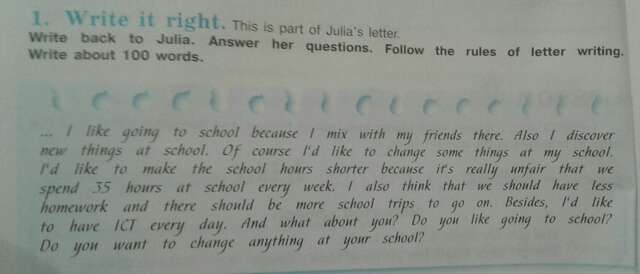 1. Write it right. This is part of Julia's letter.
Write back to Julia. Answer her questions. Follow the rules of letter writing.
Write about 100 words.
... I like going to school because I mix with my friends there. Also I discover
new things at school. Of course I'd like to change some things at my school.
I'd like to make the school hours shorter because it's really unfair that we
spend 35 hours at school every week. I also think that we should have less
homework and there should be more school trips to go on. Besides, I'd like
to have ICT every day. And what about you? Do you like going to school?
Do you want to change anything at your school?